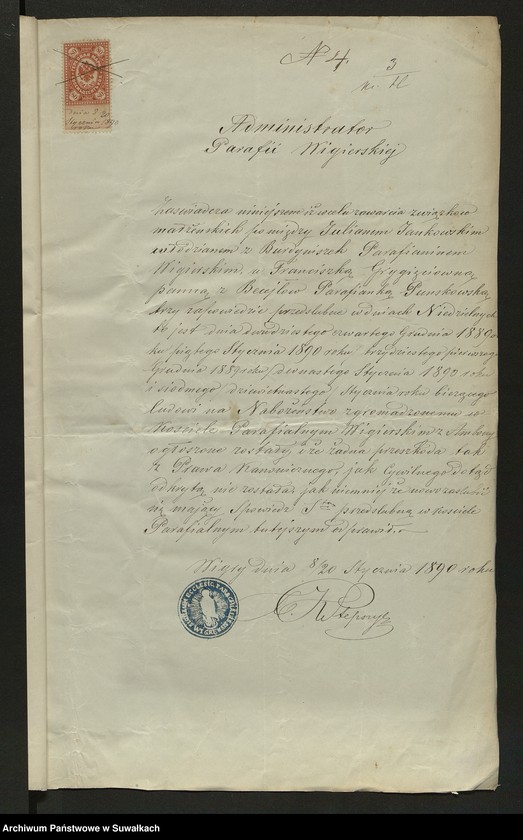 N 4
3
Administrator
Parafii Wigierskiej
Zaświadcza niniejszem iż w celu zawarcia związków
małżeńskich pomiędzy Julianem Jankowskim
młodzianem z Burdyniszek Parafianinem
Wigierskim, a Franciszką Grygiciówną
panną z Becejłow Parafianką Puńskowską,
trzy zapowiedzie przedślubne w dniach Niedzielnych
to jest dnia dwudziestego czwartego Grudnia 1889 ro
ku piątego Stycznia 1890 roku trzydziestego pierwszego
Grudnia 1889 roku/dwunastego Stycznia 1890 roku
i siódmego dziewiętnastego Stycznia roku bieżącego
ludowi na Nabożeństwo zgromadzonemu w
Kościele Parafialnym Wigierskim z Ambony
ogłoszone zostały i że żadna przeszkoda tak
z Prawa Kanonicznego jak Cywilnego dotąd
odkrytą nie została jak niemniej że
się mający Spowiedź Stą przedślubną w kościele
Parafialnym tutejszym odprawił.
Wigry dnia 8/20 Stycznia 1890 roku
X.
Archiwum Państwowe w Suwałkach